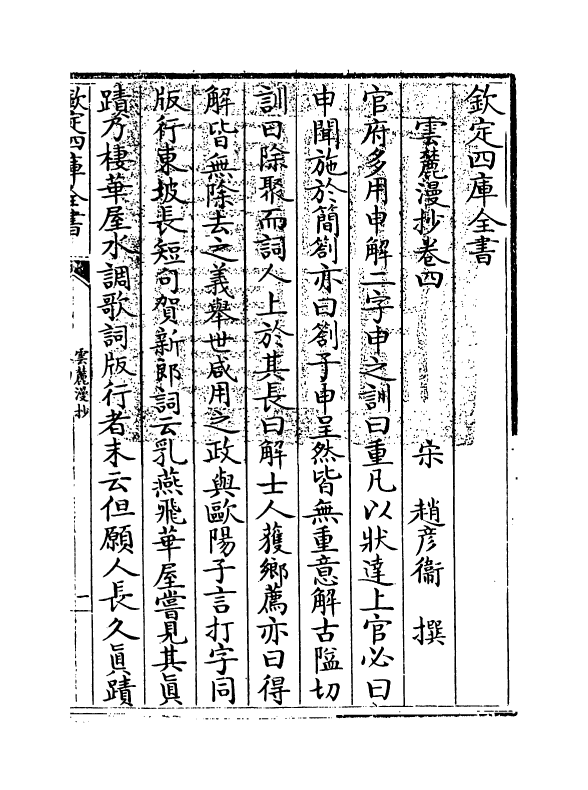 欽定四庫全書
雲麓漫抄卷四
宋 趙彦衞 撰
官府多用申解二字申之訓曰重凡以狀達上官必曰
申聞施於簡劄亦曰劄子申呈然皆無重意解古隘切
訓曰除聚而詞人上於其長曰解士人獲鄉薦亦曰得
解皆無除去之義舉世咸用之政與歐陽子言打字同
版行東坡長短句賀新郎詞云乳燕飛華屋嘗見其眞
蹟乃棲華屋水調歌詞版行者末云但願人長久眞蹟
欽定四庫全書
雲麓漫抄
一